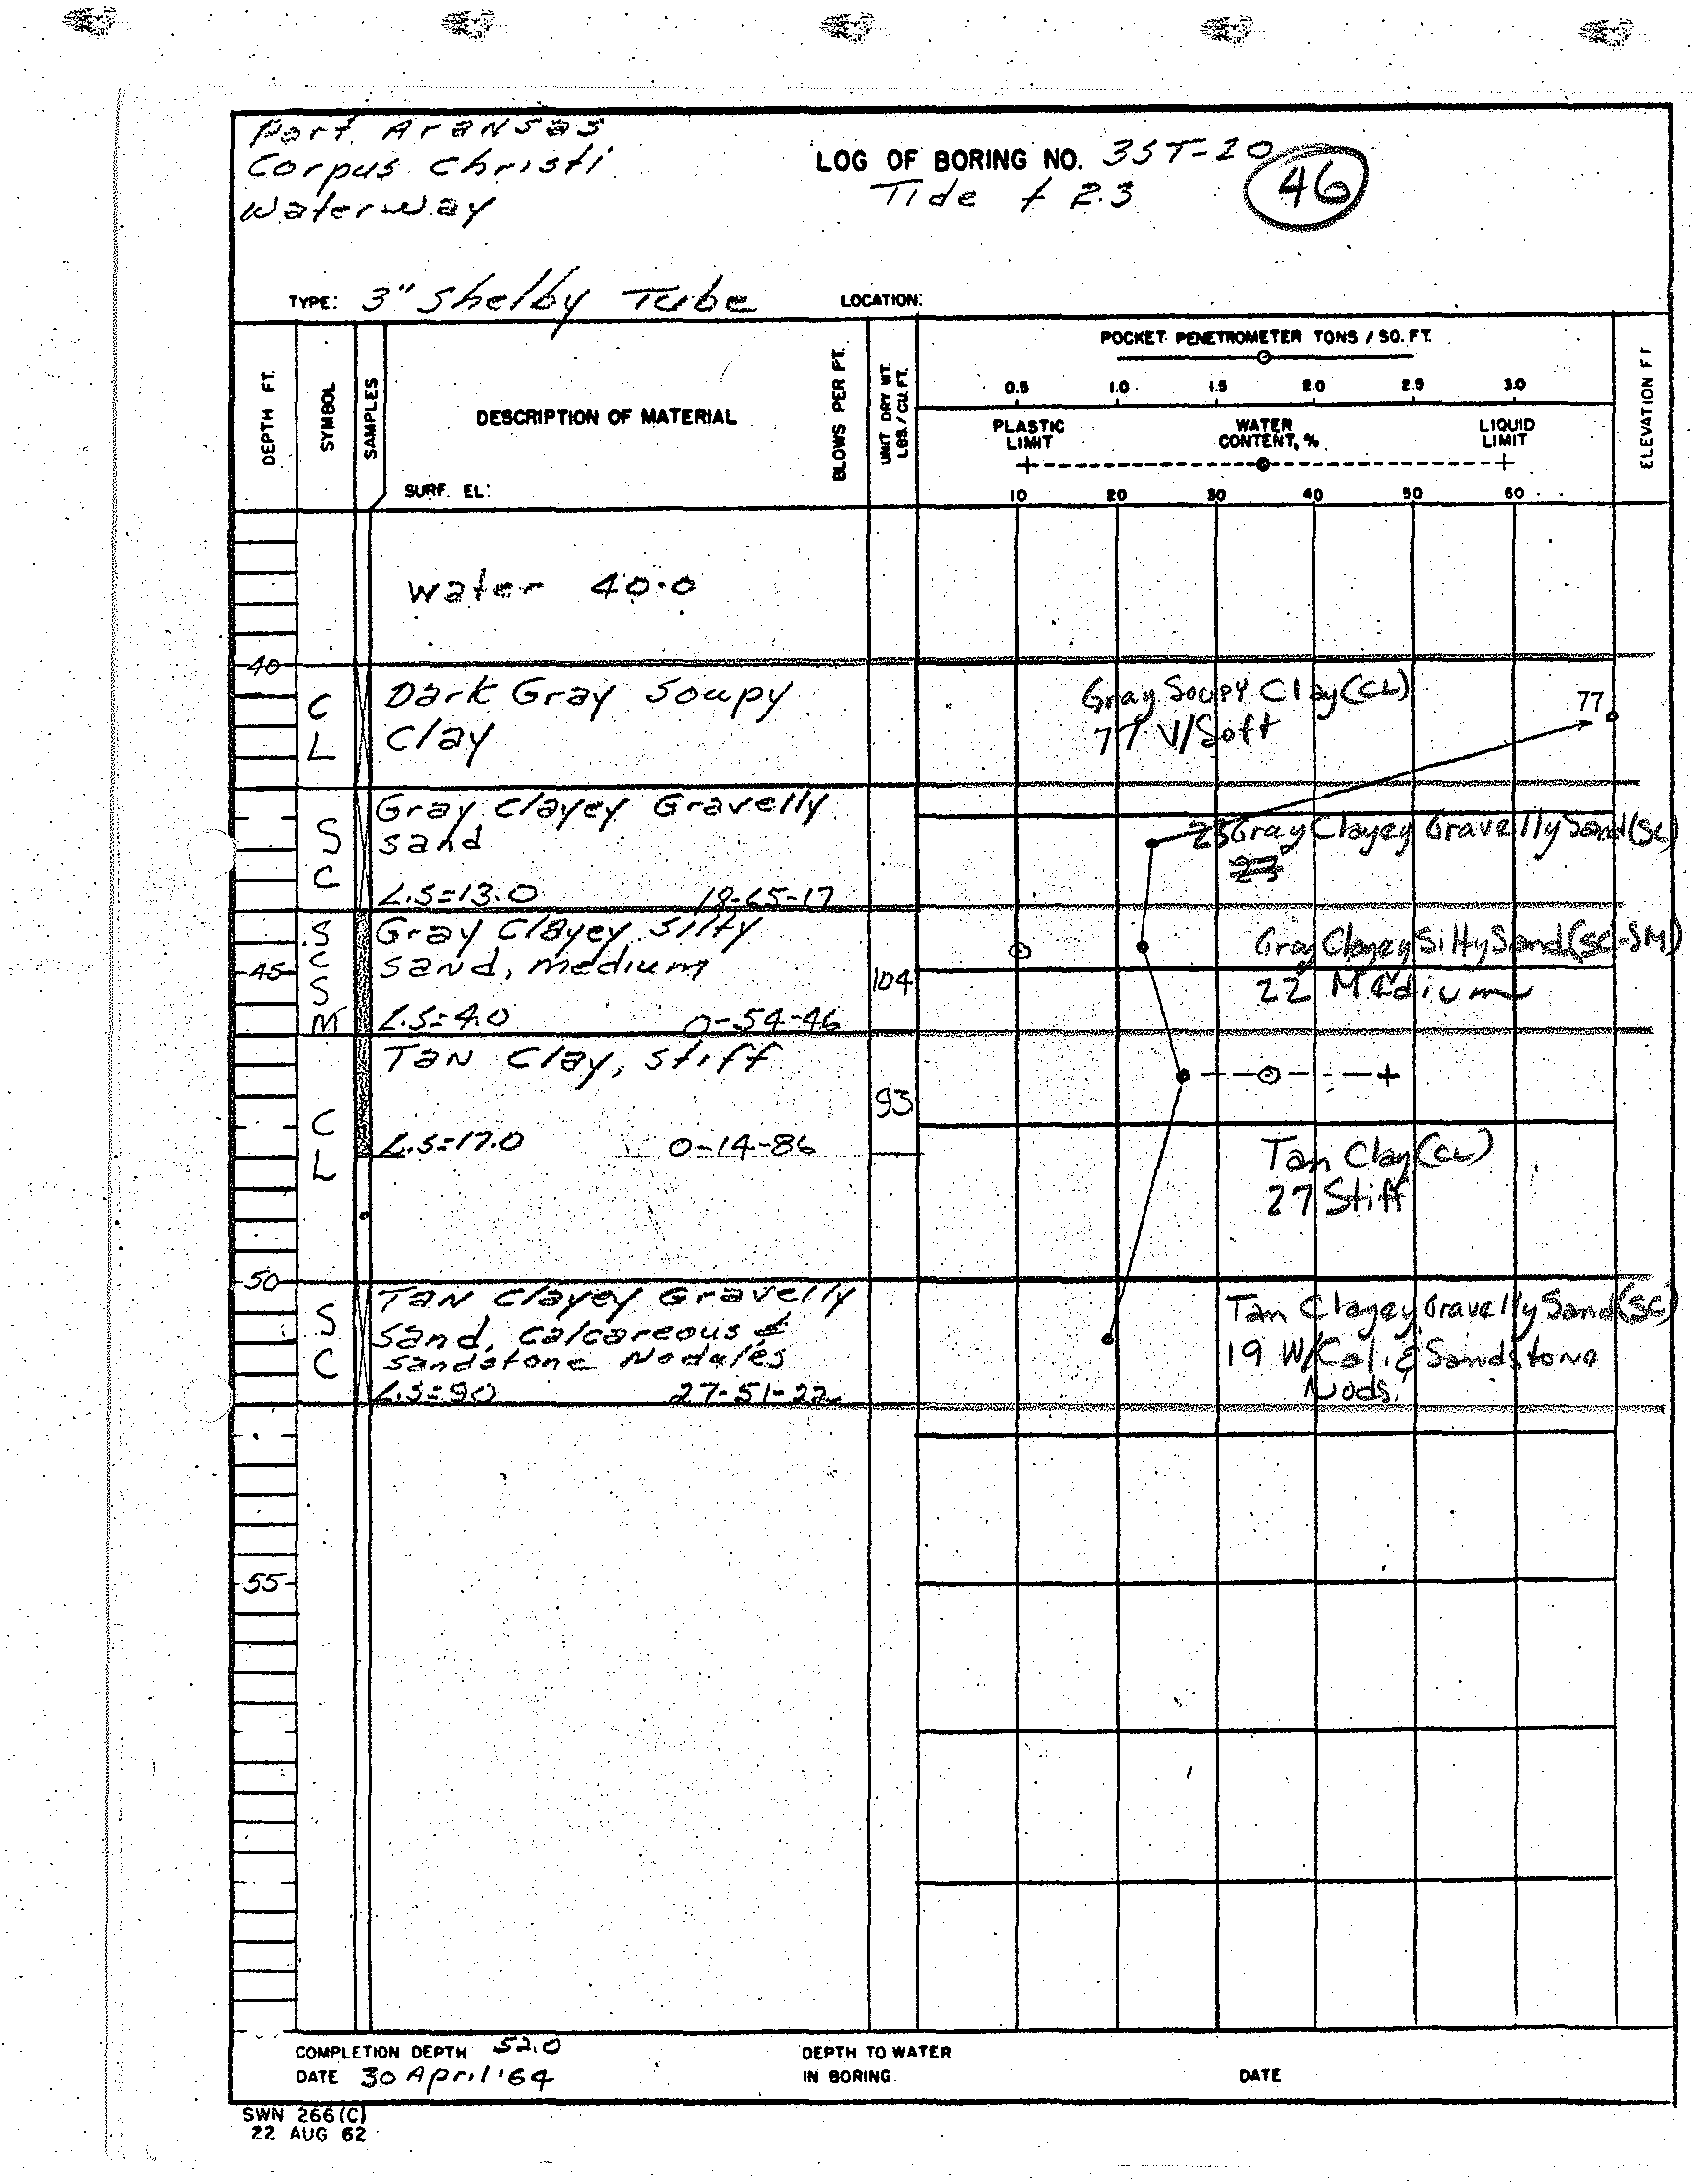 Port Aransas
Corpus Christi
Waterway
LOG OF BORING NO. 3ST-20
Tide + 2.3
46
TYPE: 3" Shelby Tube
LOCATION:
DEPTH FT.
SYMBOL
SAMPLES
DESCRIPTION OF MATERIAL
SURF. EL:
BLOWS PER FT.
UNIT DRY WT.
LBS./CU.FT.
POCKET PENETROMETER TONS / SQ. FT.
0.5 1.0 1.5 2.0 2.5 3.0
PLASTIC LIMIT
WATER CONTENT, %
LIQUID LIMIT
10 20 30 40 50 60
ELEVATION FT
water 40.0
40
CL
Dark Gray Soupy
Clay
Gray Soupy Clay (CL)
77 V/Soft
77
SC
Gray Clayey Gravelly
sand
L.S=13.0 18-65-17
Gray Clayey Gravelly Sand (SC)
23
45
SC
SM
Gray Clayey Silty
sand, medium
L.S=4.0 0-54-46
104
Gray Clayey Silty Sand (SC-SM)
22 Medium
CL
Tan Clay, stiff
L.S=17.0 0-14-86
93
Tan Clay (CL)
27 Stiff
50
SC
Tan Clayey Gravelly
Sand, Calcareous &
sandstone Nodules
L.S=9.0 27-51-22
Tan Clayey Gravelly Sand (SC)
19 W/Cal. & Sandstone
Nods.
55
COMPLETION DEPTH 52.0
DATE 30 April '64
DEPTH TO WATER
IN BORING
DATE
SWN 266 (C)
22 AUG 62